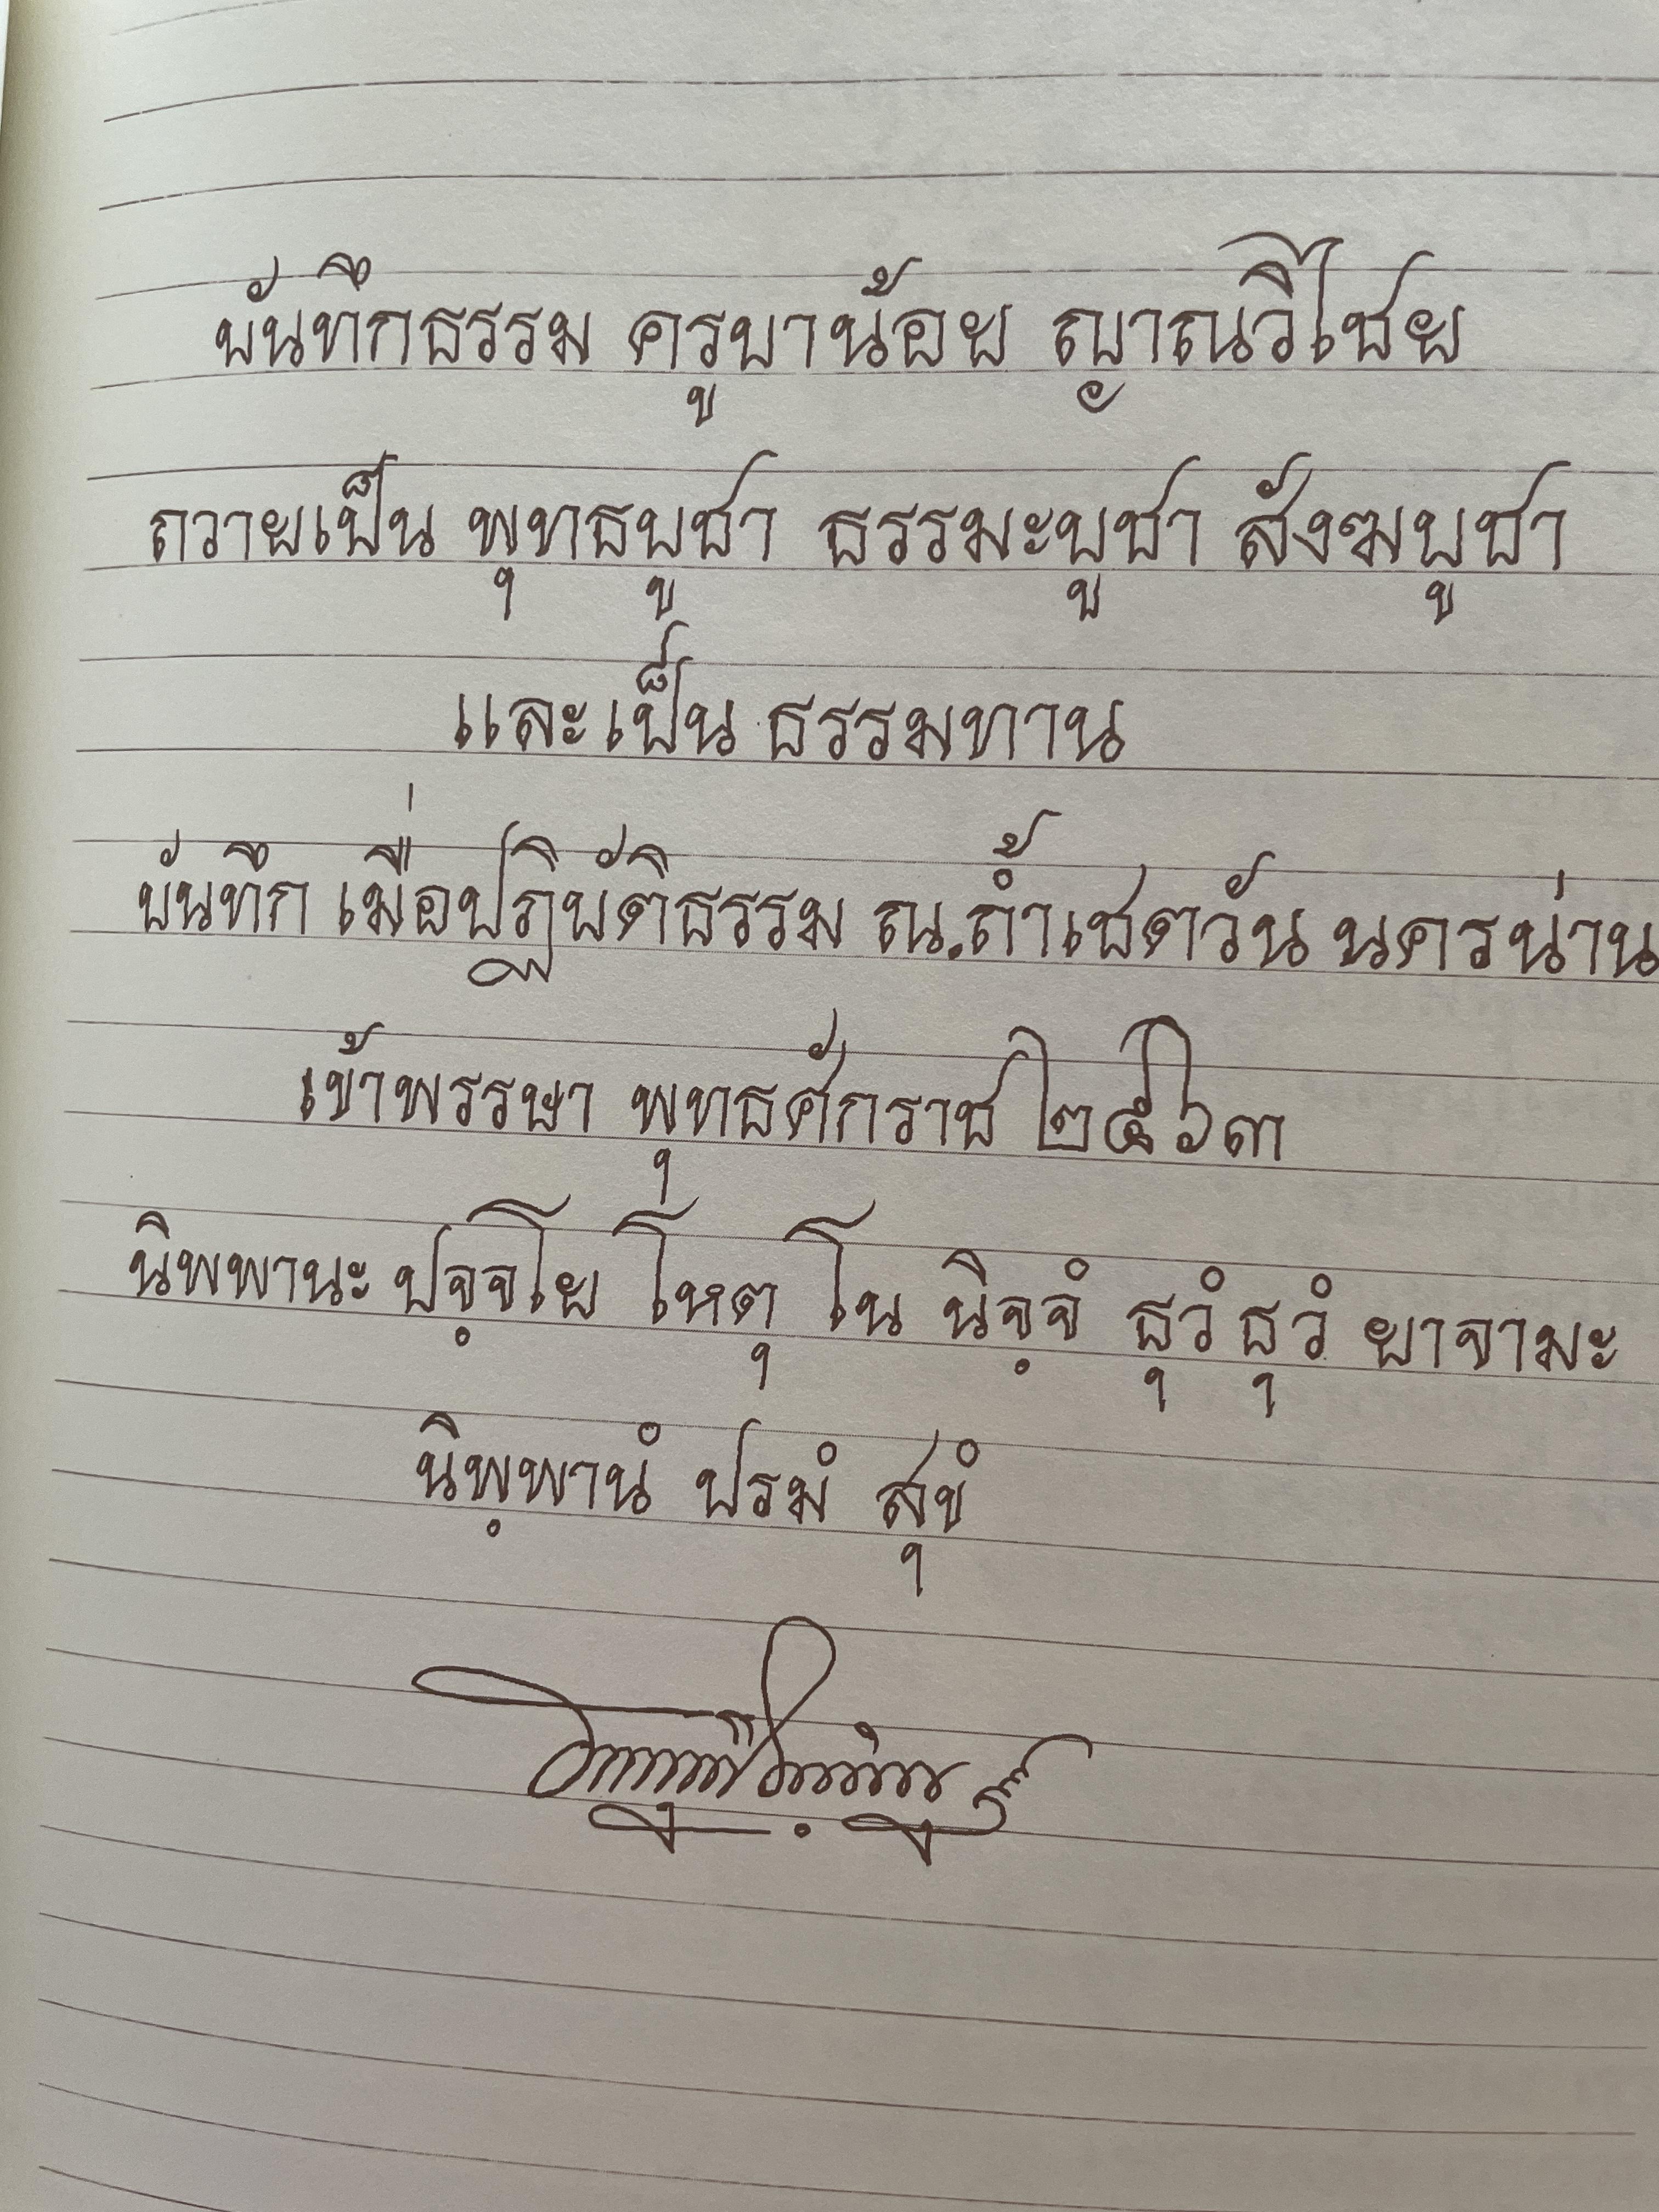 บันทึกธรรม ครูบาน้อย ญาณวิไชย
ถวายเป็น พุทธบูชา ธรรมะบูชา สังฆบูชา
และเป็น ธรรมทาน
บันทึก เมื่อปฏิบัติธรรม ณ.ถ้ำเชตวัน นครน่าน
เข้าพรรษา พุทธศักราช ๒๕๖๓
นิพพานะ ปจฺจโย โหตุ โน นิจฺจํ ธุวํธุวํ ยาจามะ
นิพฺพานํ ปรมํ สุขํ